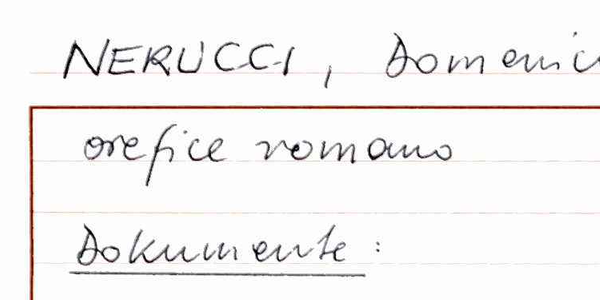 NERUCCI, Domenic
orefice romano
Dokumente: